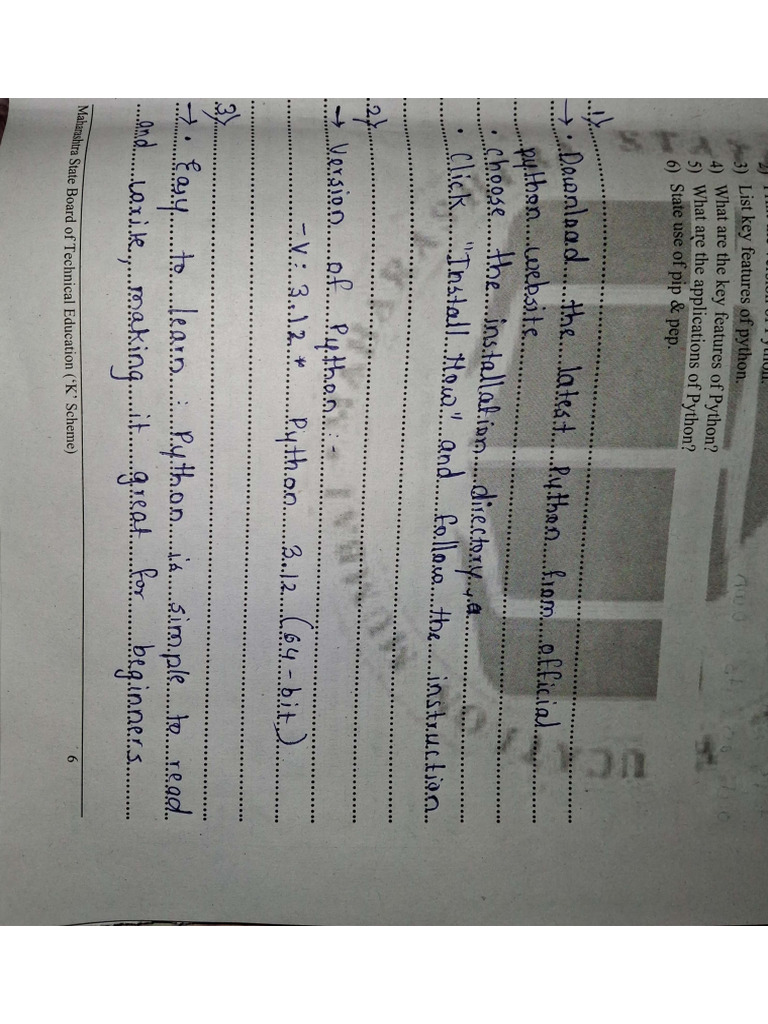 3) List key features of python.
4) What are the key features of Python?
5) What are the applications of Python?
6) State use of pip & pep.
1)
→ • Download the latest Python from official
python website
• choose the installation directory
• Click "Install Now" and follow the instruction
2)
→ Version of Python :-
-V : 3.12 * Python 3.12 (64-bit)
3)
→ • Easy to learn : Python is simple to read
and warite, making it great for beginners
Maharashtra State Board of Technical Education ('K' Scheme) 6